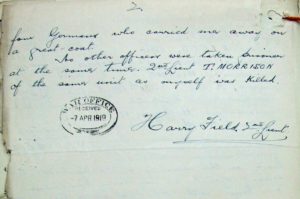 2
four Germans who carried me away on
a great coat.
No other officers were taken prisoner
at the same time. 2nd Lieut T. MORRISON
of the same unit as myself was killed.
WAR OFFICE
RECEIVED
-7 APR 1919
Harry Field, 2nd Lieut